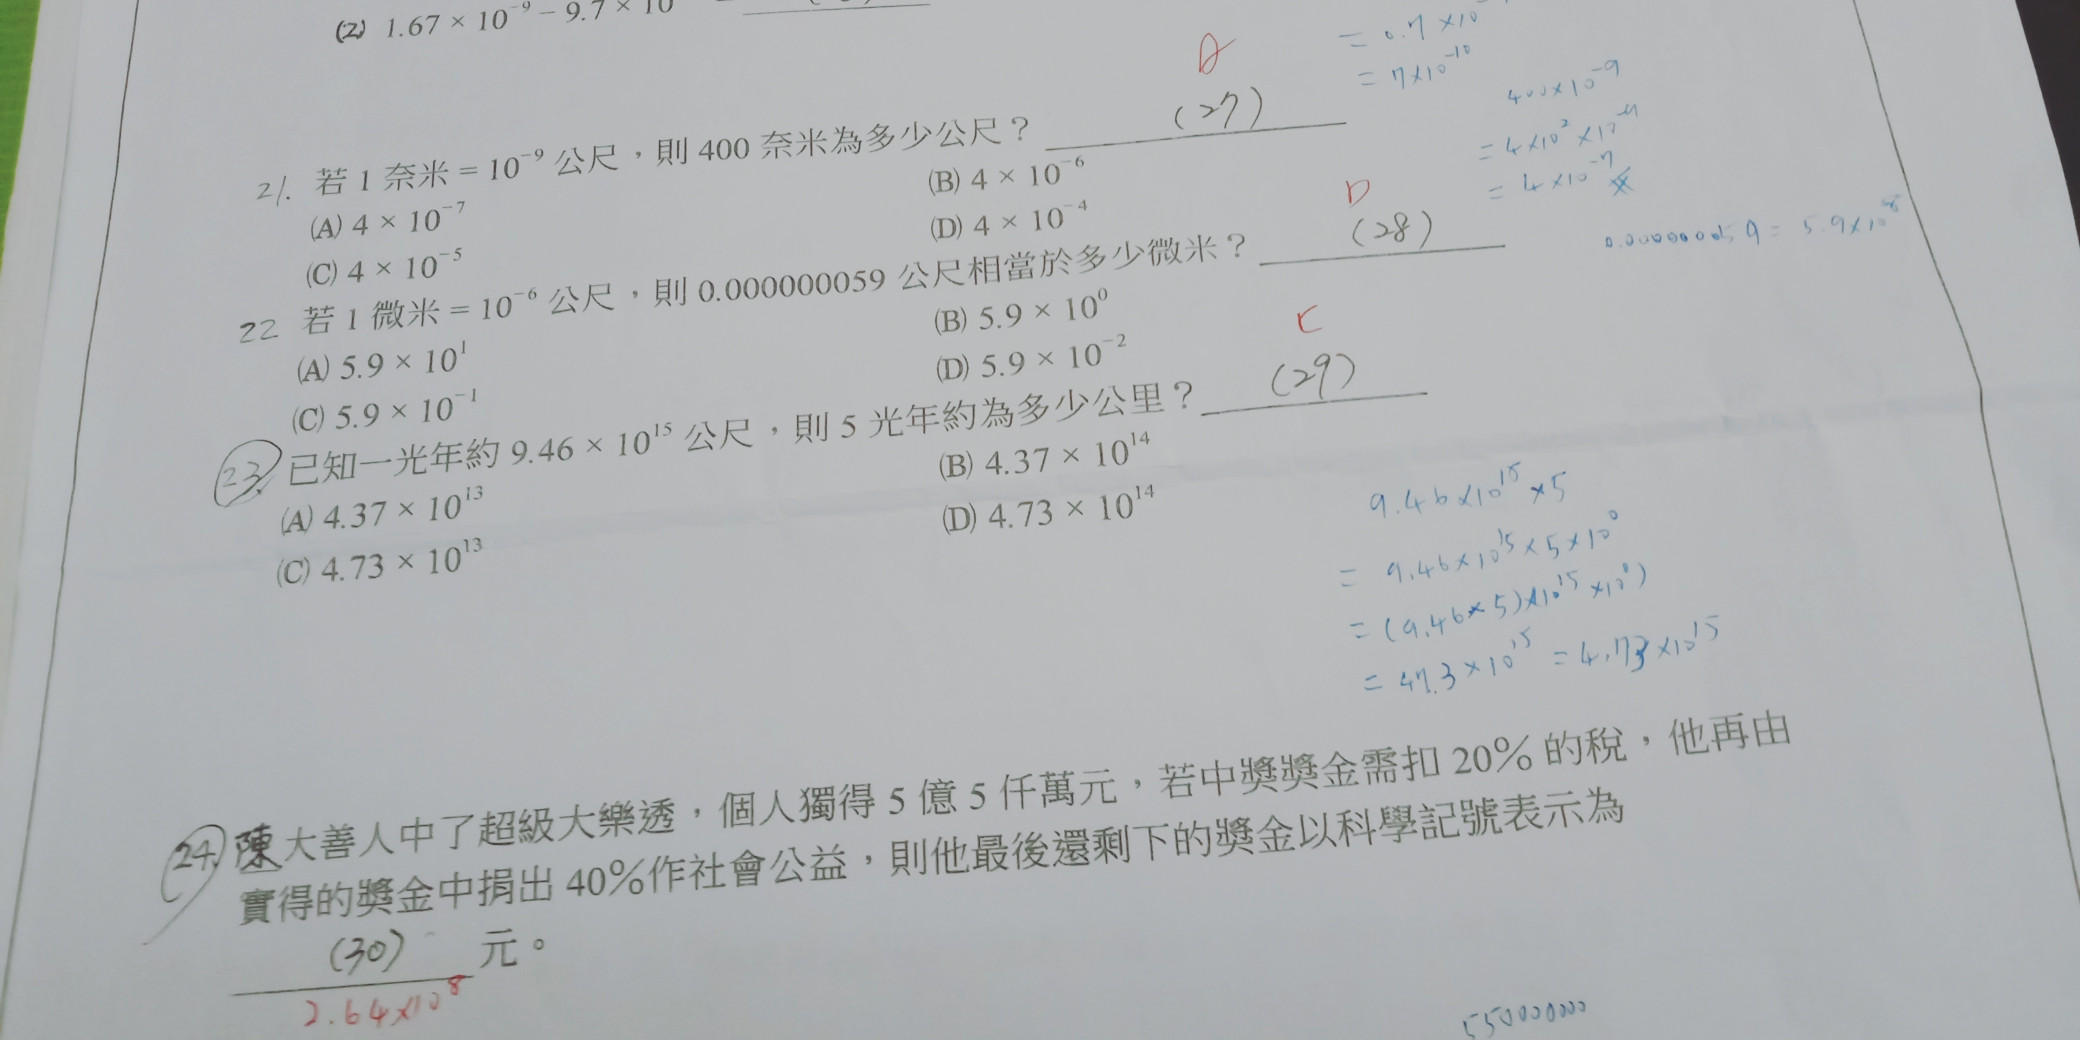 (2) 1.67 × 10⁻⁹ − 9.7 × 10
= 0.7 × 10
= 7×10⁻¹⁰
A
21. 若 1 奈米 = 10⁻⁹ 公尺，則 400 奈米為多少公尺？ (27)
(A) 4 × 10⁻⁷ (B) 4 × 10⁻⁶
(C) 4 × 10⁻⁵ (D) 4 × 10⁻⁴
400×10⁻⁹
= 4×10² ×10⁻⁹
= 4×10⁻⁷
D
22 若 1 微米 = 10⁻⁶ 公尺，則 0.000000059 公尺相當於多少微米？ (28)
(A) 5.9 × 10¹ (B) 5.9 × 10⁰
(C) 5.9 × 10⁻¹ (D) 5.9 × 10⁻²
C
23. 已知一光年約 9.46 × 10¹⁵ 公尺，則 5 光年約為多少公里？ (29)
(A) 4.37 × 10¹³ (B) 4.37 × 10¹⁴
(C) 4.73 × 10¹³ (D) 4.73 × 10¹⁴
9.46×10¹⁵ ×5
= 9.46×10¹⁵×5×10⁰
= (9.46×5)×10¹⁵ ×10⁰)
= 47.3×10¹⁵ = 4.73×10¹⁵
24. 陳大善人中了超級大樂透，個人獨得 5 億 5 仟萬元，若中獎獎金需扣 20% 的稅，他再由
實得的獎金中捐出 40%作社會公益，則他最後還剩下的獎金以科學記號表示為
(30) 元。
2.64×10⁸
550000000